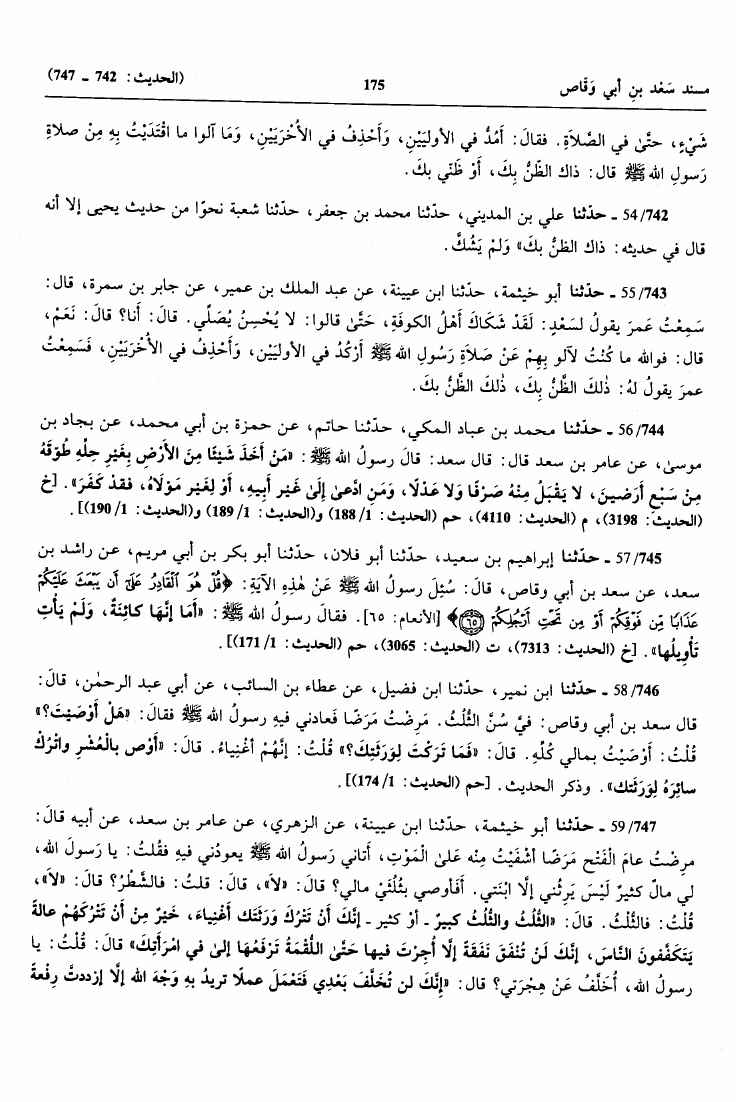 مسند سَعْد بنِ أبي وَقَّاص 175 (الحديث: 742 ـ 747)
شَيْءٍ، حتَّى في الصَّلاَةِ. فقالَ: أَمُدُّ في الأوليَيْنِ، وَأَحْذِفُ في الأُخْرَيَيْنِ، وَمَا آلوا ما اقْتَدَيْتُ بِهِ مِنْ صلاةِ
رَسولِ الله ﷺ قال: ذاك الظّنُّ بِكَ، أَوْ ظَنّي بكَ.
54/742 ـ حدّثنا علي بن المديني، حدّثنا محمد بن جعفر، حدّثنا شعبة نحوًا من حديث يحيى إلا أنه
قال في حديثه: ذاك الظنُّ بكَ» وَلَمْ يَشُكَّ.
55/743 ـ حدّثنا أبو خيثمة، حدّثنا ابن عيينة، عن عبد الملك بن عمير، عن جابر بن سمرة، قال:
سَمِعْتُ عمرَ يقولُ لسَعْدٍ: لَقَدْ شَكَاكَ أَهْلُ الكوفَةِ، حَتَّى قالوا: لا يُحْسِنُ يُصَلِّي. قالَ: أَنا؟ قالَ: نَعَمْ،
قال: فوالله ما كُنْتُ لآلو بِهِمْ عَنْ صَلاَةِ رَسُولِ الله ﷺ أَرْكُدُ في الأوليَيْن، وَأَحْذِفُ في الأُخْرَيَيْنِ، فَسَمِعْتُ
عمرَ يقولُ لهُ: ذٰلكَ الظَّنُّ بِكَ، ذٰلكَ الظَّنُّ بكَ.
56/744 ـ حدّثنا محمد بن عباد المكي، حدّثنا حاتم، عن حمزة بن أبي محمد، عن بجاد بن
موسى، عن عامر بن سعد قال: قال سعد: قالَ رسولُ الله ﷺ: «مَنْ أَخَذَ شَيْئًا مِنَ الأَرْضِ بِغَيْرِ حِلِّهِ طُوِّقَهُ
مِنْ سَبْعِ أَرَضينَ، لا يَقْبَلُ مِنْهُ صَرْفًا وَلا عَدْلًا، وَمَنِ ادَّعَىٰ إِلَىٰ غَيْرِ أَبِيهِ، أَوْ لِغَيرِ مَوْلاَهُ، فقَدْ كَفَرَ». [خ
(الحديث: 3198)، م (الحديث: 4110)، حم (الحديث: 1/ 188) و(الحديث: 1/ 189) و(الحديث: 1/ 190)].
57/745 ـ حدّثنا إبراهيم بن سعيد، حدّثنا أبو فلان، حدّثنا أبو بكر بن أبي مريم، عن راشد بن
سعد، عن سعد بن أبي وقاص، قالَ: سُئِلَ رسولُ الله ﷺ عَنْ هٰذِهِ الآيَةِ: ﴿قُلْ هُوَ ٱلْقَادِرُ عَلَىٰٓ أَن يَبْعَثَ عَلَيْكُمْ
عَذَابًا مِّن فَوْقِكُمْ أَوْ مِن تَحْتِ أَرْجُلِكُمْ ﴿٦٥﴾﴾ [الأنعام: ٦٥]. فقالَ رسول الله ﷺ: «أَمَا إِنَّهَا كائِنَةٌ، وَلَمْ يَأْتِ
تَأْوِيلُها». [خ (الحديث: 7313)، ت (الحديث: 3065)، حم (الحديث: 1/ 171)].
58/746 ـ حدّثنا ابن نمير، حدّثنا ابن فضيل، عن عطاء بن السائب، عن أبي عبد الرحمٰن، قالَ:
قال سعد بن أبي وقاص: فيَّ سُنَّ الثُّلُثُ. مَرِضْتُ مَرَضًا فعادَني فيهِ رسولُ الله ﷺ فقالَ: «هَلْ أَوْصَيْتَ؟»
قُلْتُ: أَوْصَيْتُ بمالي كُلِّهِ. قالَ: «فَمَا تَرَكْتَ لِوَرَثَتِكَ؟» قُلْتُ: إنَّهُمْ أَغْنِياءُ. قالَ: «أَوْصِ بالْعُشْرِ واتْرُكْ
سائِرَهُ لِوَرَثَتِكَ». وذكر الحديث. [حم (الحديث: 1/ 174)].
59/747 ـ حدّثنا أبو خيثمة، حدّثنا ابن عيينة، عن الزهري، عن عامر بن سعد، عن أبيه قالَ:
مرِضْتُ عامَ الفَتْحِ مَرَضًا أَشْفَيْتُ مِنْه عَلىٰ المَوْتِ، أَتاني رَسولُ الله ﷺ يعودُني فيهِ فقُلْتُ: يا رَسولَ الله،
لي مالٌ كثيرٌ لَيْسَ يَرِثُني إلّا ابْنَتي. أَفَأوصي بثُلُثَيْ مالي؟ قالَ: «لا»، قالَ: قلتُ: فالشَّطْرُ؟ قالَ: «لا»،
قُلْتُ: فالثُلُثُ. قالَ: «الثُّلُثُ والثُّلُثُ كَبيرٌ ـ أوْ كثير ـ إِنَّكَ أَنْ تَتْرُكَ وَرَثَتَكَ أَغْنِياءَ، خَيْرٌ مِنْ أَنْ تَتْرُكَهُمْ عالةً
يَتَكَفَّفونَ النَّاسَ، إنَّكَ لَنْ تُنْفِقَ نَفَقَةً إلَّا أُجِرْتَ فيها حَتَّى اللُّقْمَةُ تَرْفَعُها إلىٰ في امْرَأَتِكَ» قالَ: قُلْتُ: يا
رسولُ الله، أُخَلَّفُ عَنْ هِجْرَتي؟ قال: «إِنَّكَ لن تُخَلَّفَ بَعْدِي فَتَعْمَلَ عملًا تريدُ بهِ وَجْهَ الله إلَّا ازددتَّ رِفْعةً